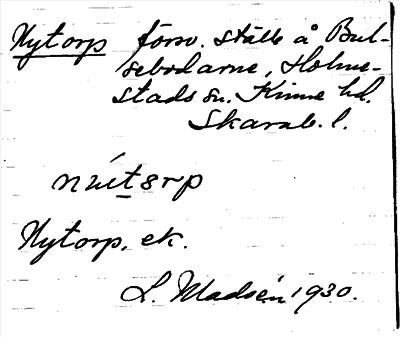 Nytorp försv. ställe å Bul-
sebodarne, Holme-
stads sn. Kinne hd.
Skarab. l.
Nytorp, ek.
L. Madsén 1930.